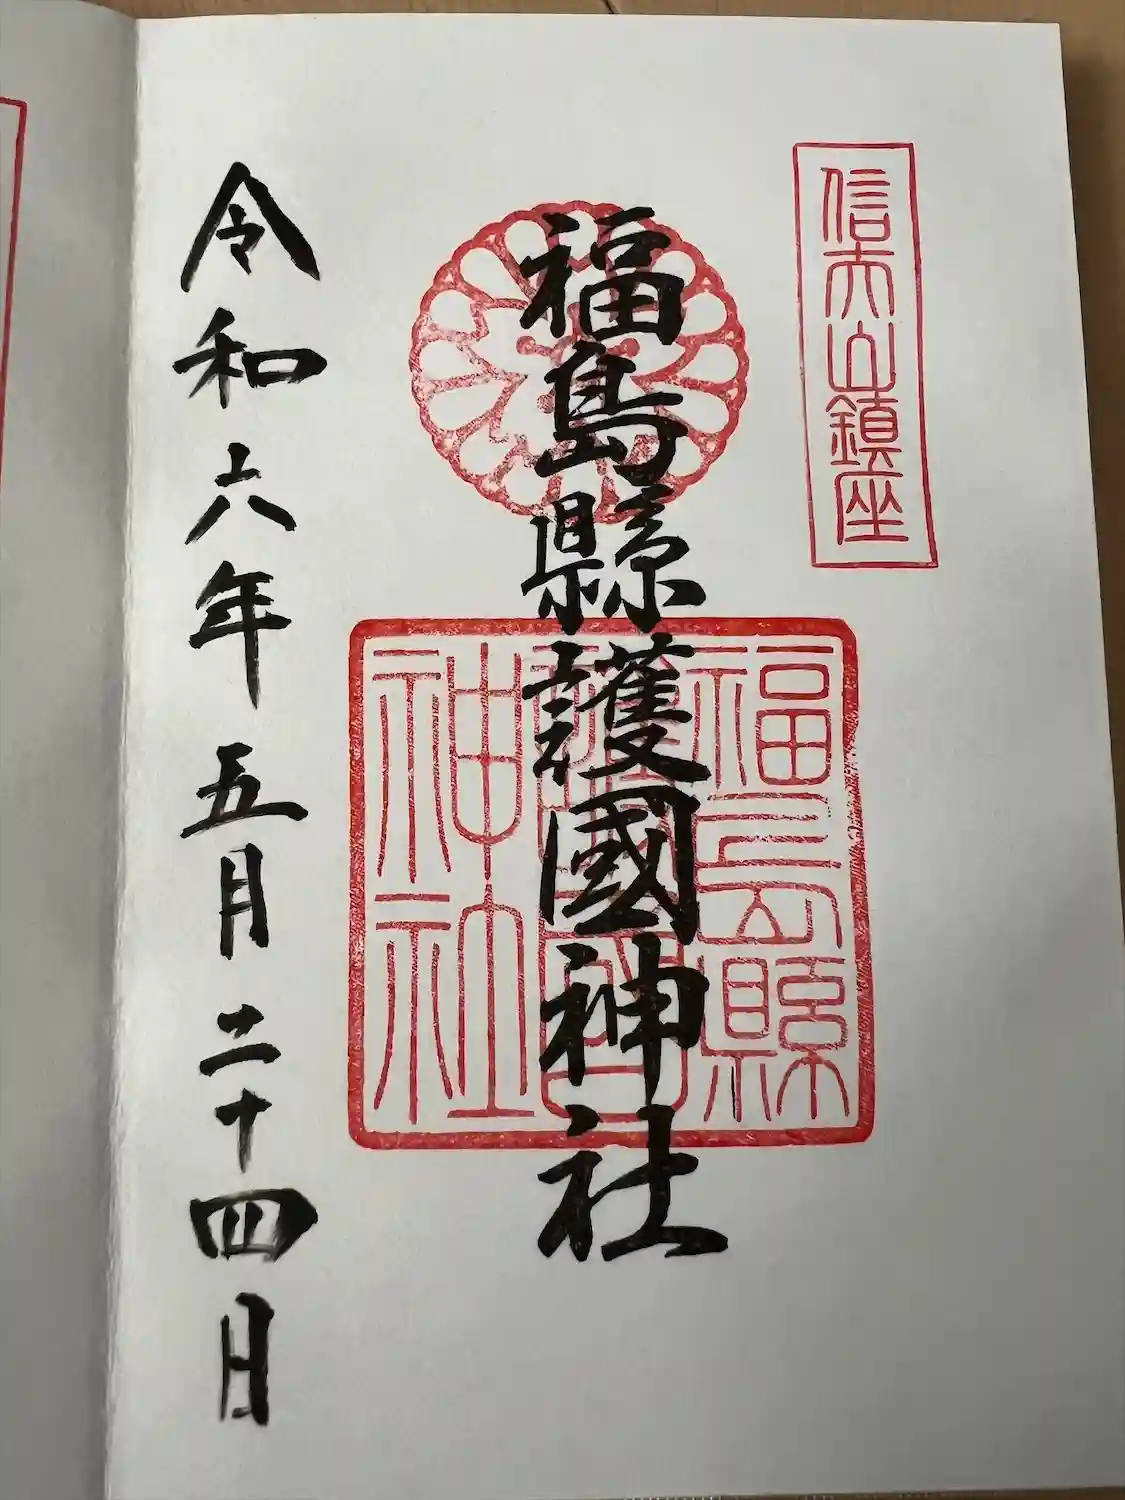 信夫山鎮座
福島縣護國神社
福島縣
護國
神社
令和六年五月二十四日